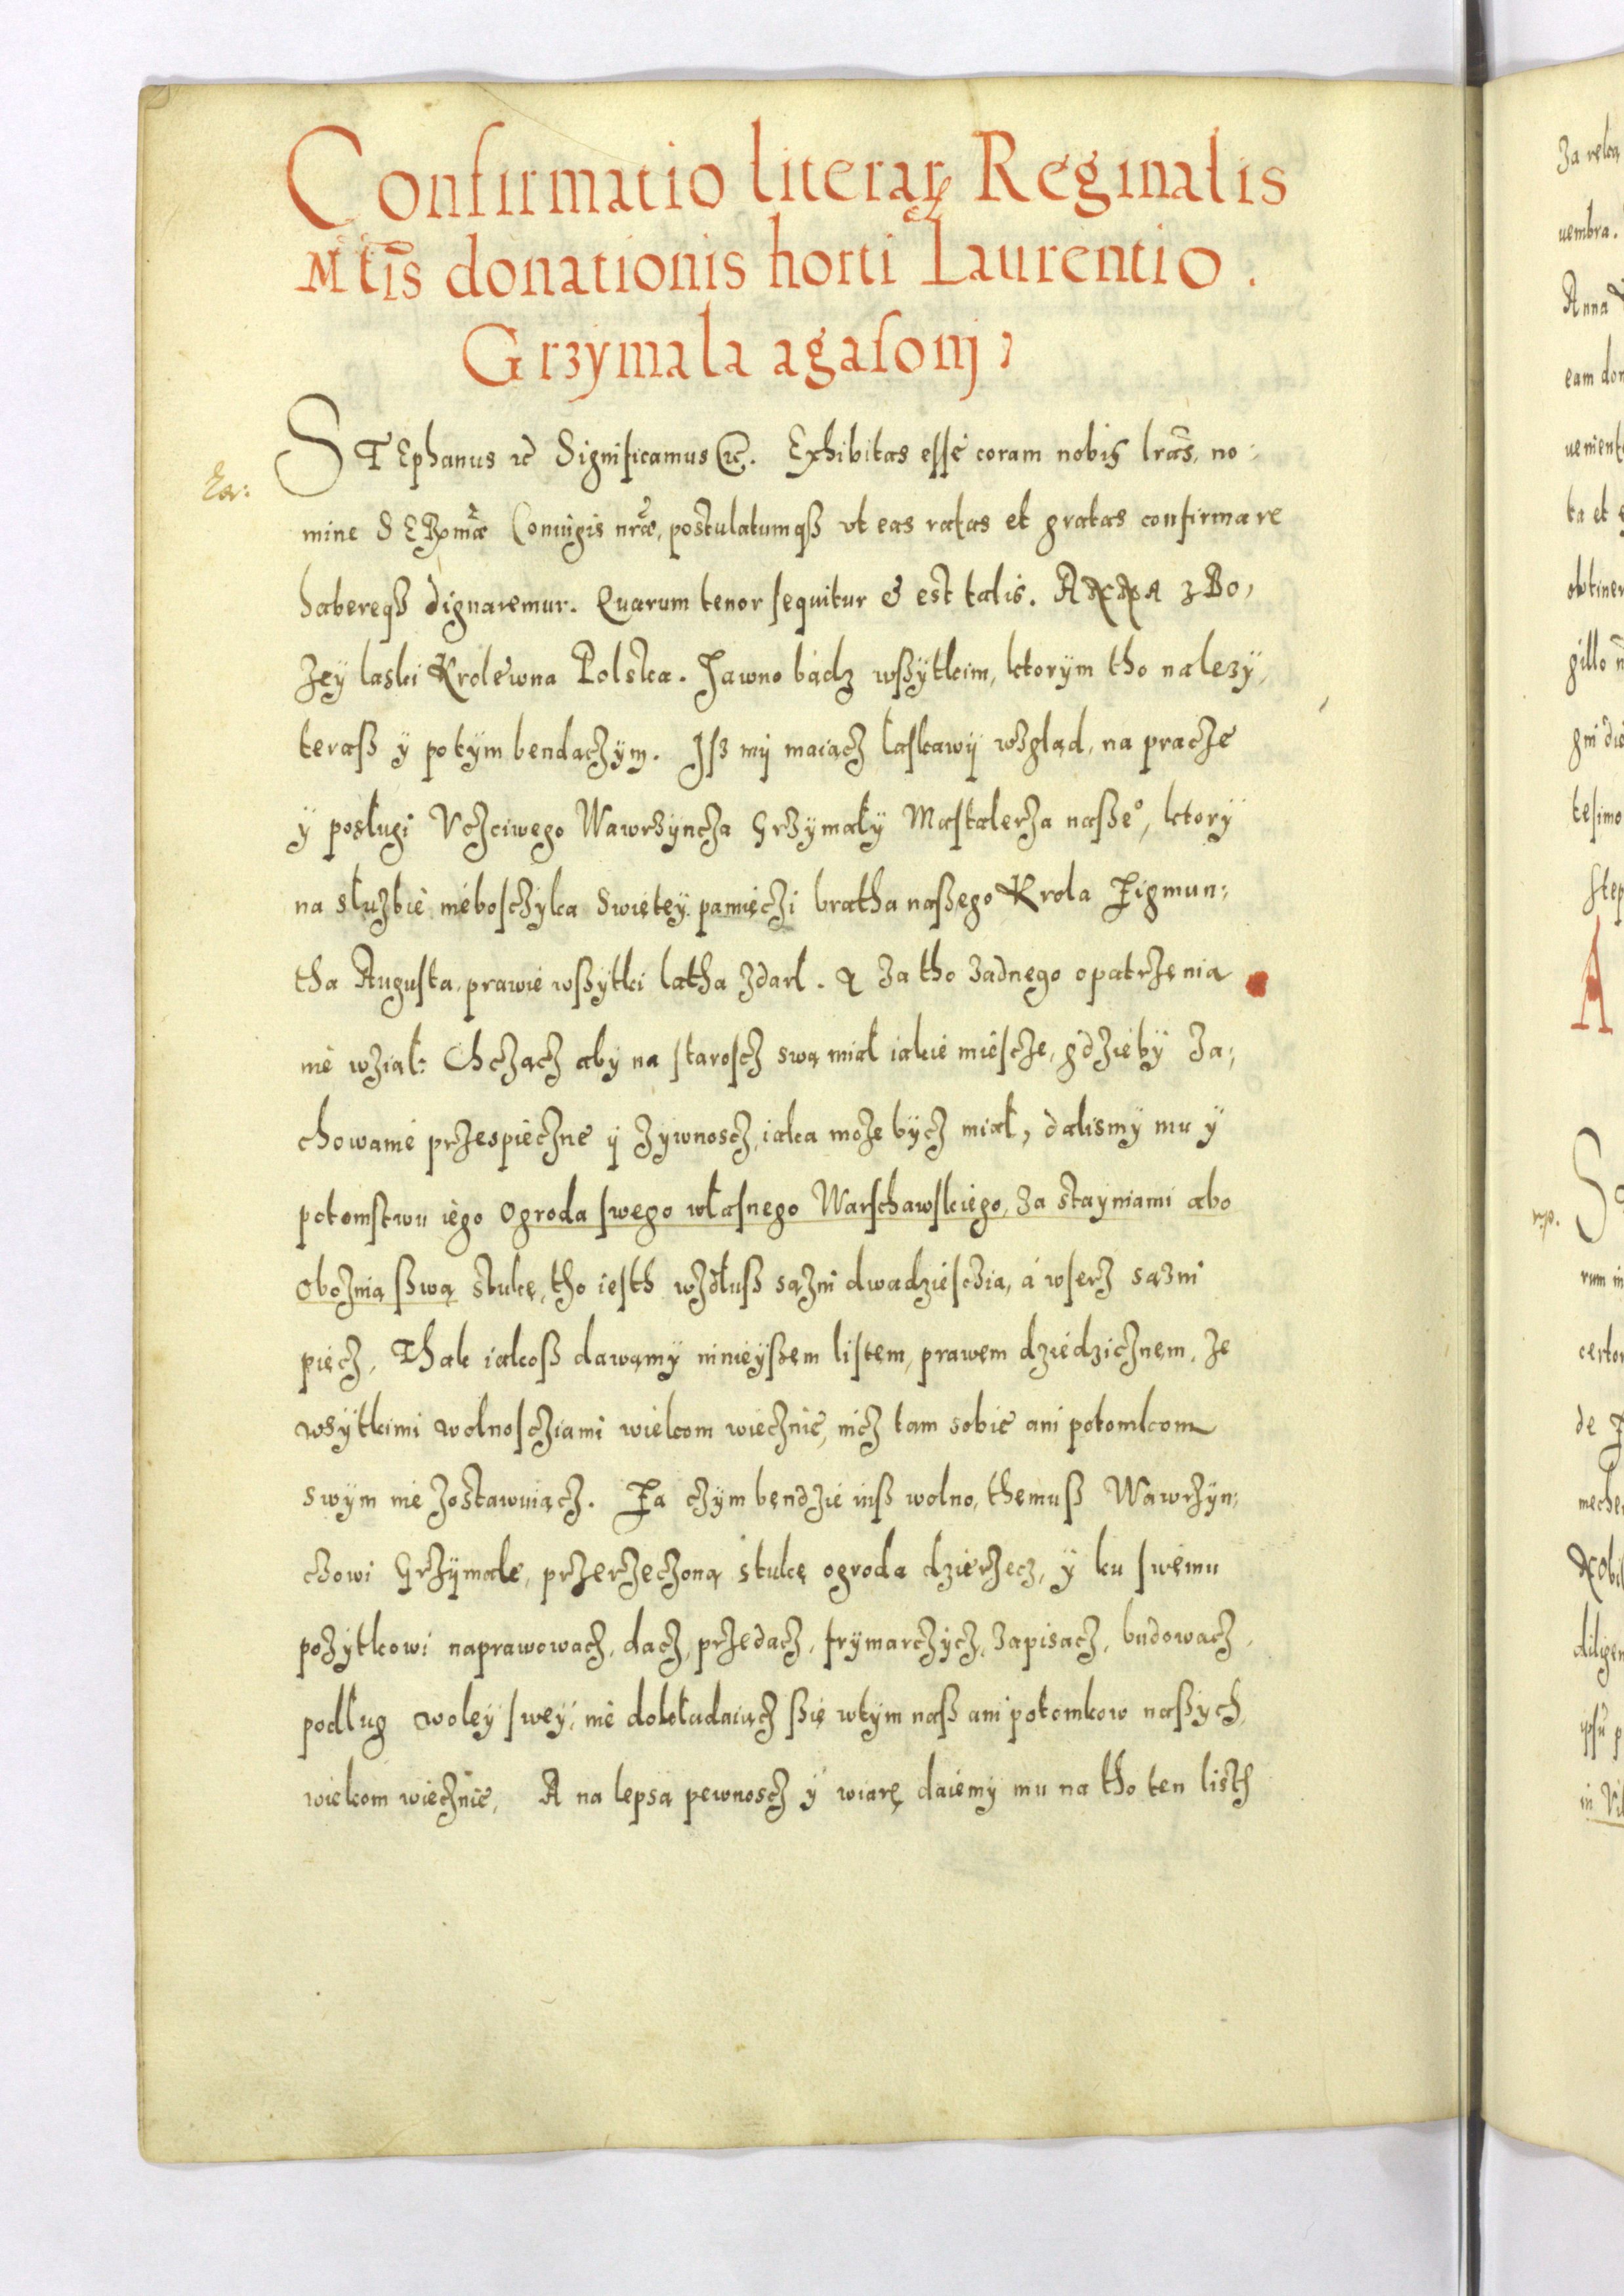 Confirmatio literar Reginalis
Mtis donationis horti Laurentio.
Grzymala agasonj,
STEphanus &c Significamus &c. Exhibitas esse coram nobis lras, no:
mine SERmæ Coniugis nræ, postulatumqß vt eas ratas et gratas confirmare
habereqß dignaremur. Quarum tenor sequitur & est talis. ANNA z Bo,
zey laski Krolewna Polska. Jawno bądz wßytkim, ktorym tho nalezy,
teraß y potym bendączym. Iß my maiącz łaskawy wzgląd, na pracze
y posługi Vczciwego Wawrzyncza Grzymały Mastalerza naße°, ktory
na służbie nieboszczyka Swiętey pamięczi bratha naßego Krola Zigmun:
tha Augusta, prawie wßytki latha zdarl. A za tho zadnego opatrzenia
nie wział: Chczącz aby na staroscz swą miał iakie miescze, gdzieby za:
chowanie przespieczne y zywnoscz, iaka może bycz miał, dalismy mu y
potomstwu iego Ogroda swego własnego Warschawskiego, za stayniami abo
Oboznią ßwą stukę, tho iesth wzdłuß sązni dwadziesczia, á wserz sązni
pięcz, Thak iakoß dawamy ninieyßem listem, prawem dziedzicznem, ze
wsytkimi wolnoscziami wiekom wiecznie, nicz tam sobie ani potomkom
swym nie zostawuiącz. Za czym bendzie iuß wolno, themuß Wawrzyn:
czowi Grzymale, przerzeczoną stukę ogroda dzierzecz, y ku swemu
pozytkowi naprawowacz, dacz, przedacz, frymarczycz, zapisacz, budowacz,
podlug woley swey, nie dokładaiącz ßię wtym naß ani potomkow naßych,
wiekom wiecznie, A na lepsą pewnoscz y wiarę daiemy mu na tho ten listh